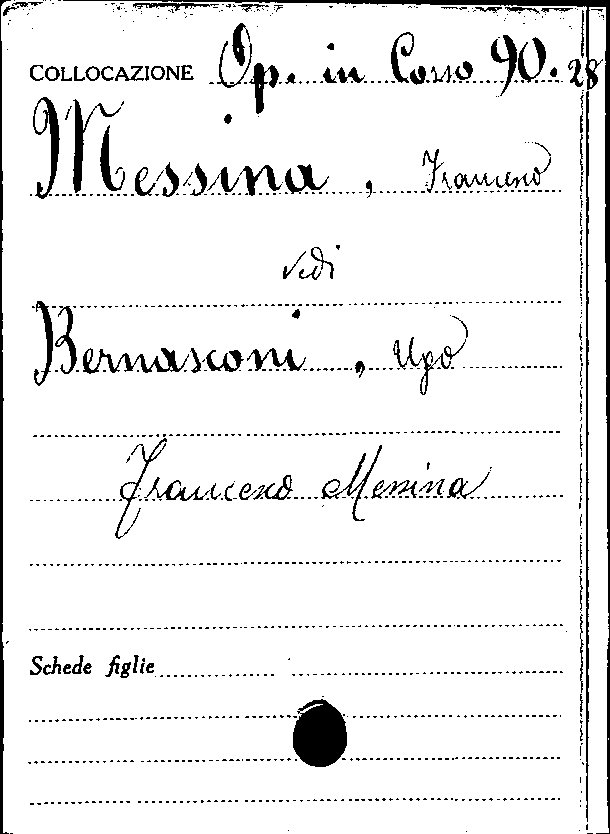 COLLOCAZIONE Op. in Corso 90.28
Messina, Francesco
vedi
Bernasconi, Ugo
Francesco Messina
Schede figlie